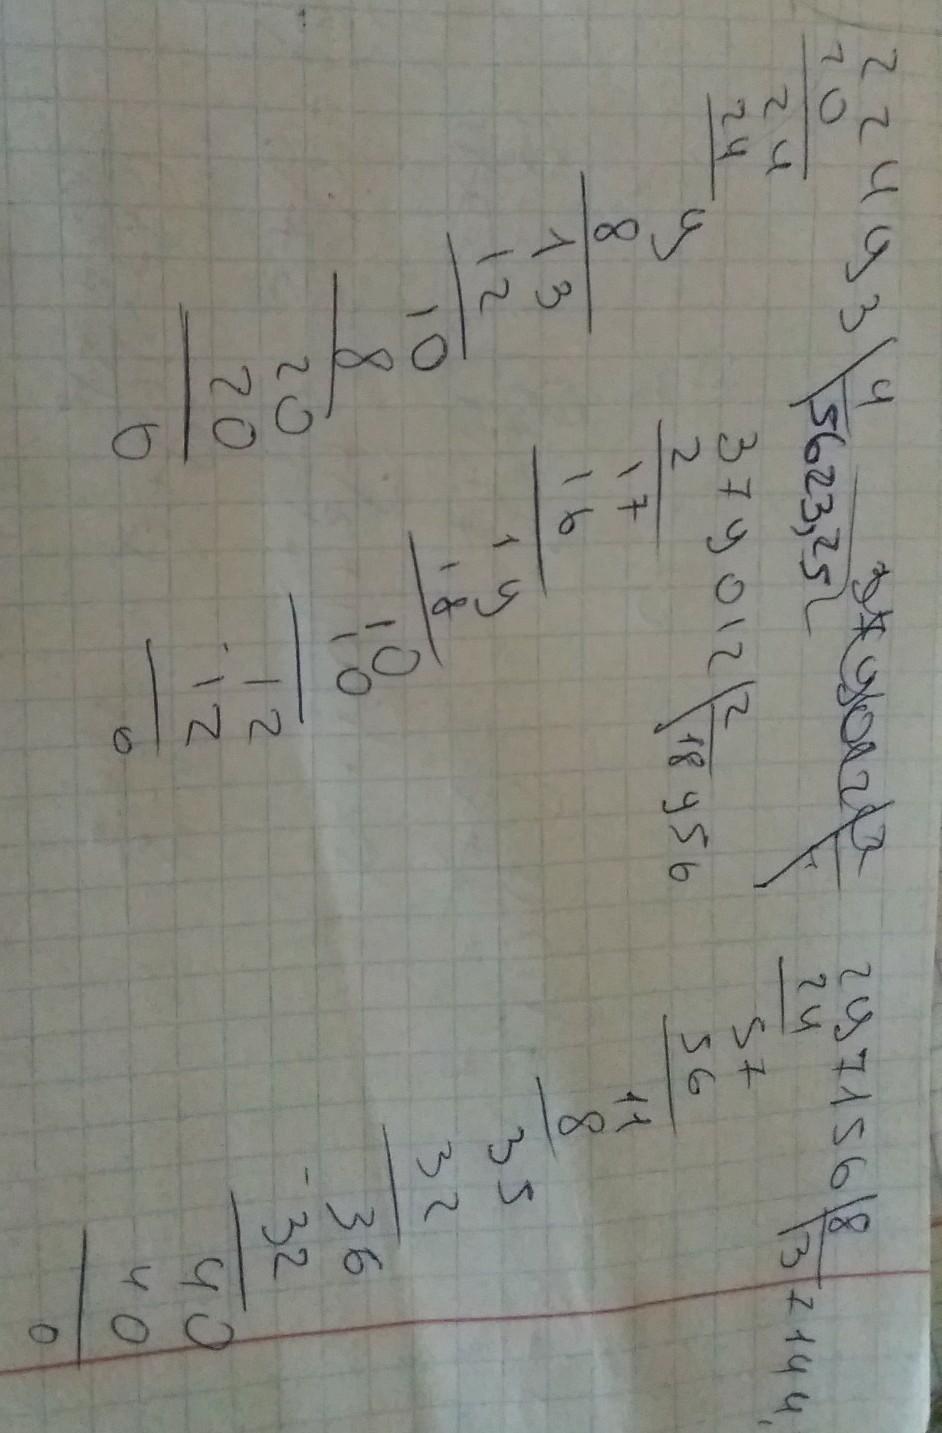 22493 4
20 5623,25
24
24
9
8
13
12
10
8
20
20
0
379012 2
2 18956
17
16
19
18
10
10
12
12
0
297156 8
24 37144,
57
56
11
8
35
32
36
32
40
40
0